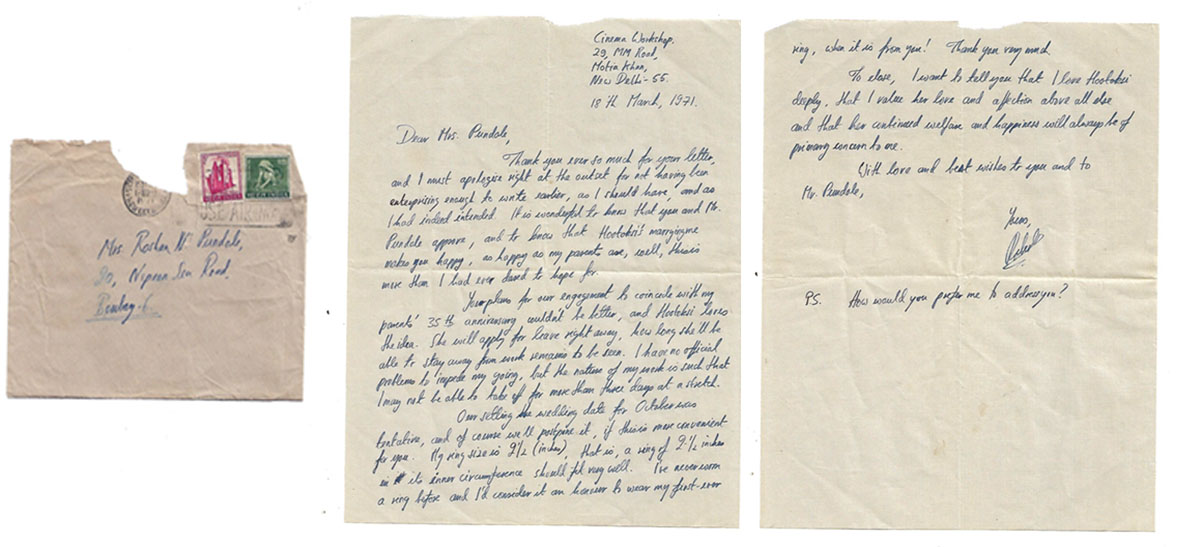 USE AIRMAIL
Mrs. Roshan N. Pundole,
20, Nepean Sea Road,
Bombay-6.
Cinema Workshop.
29, MM Road,
Motia Khan,
New Delhi-55.
18th March, 1971.
Dear Mrs. Pundole,
Thank you ever so much for your letter,
and I must apologise right at the outset for not having been
enterprising enough to write earlier, as I should have, and as
I had indeed intended. It is wonderful to know that you and Mr.
Pundole approve, and to know that Hootoksi's marrying me
makes you happy, as happy as my parents are, well, this is
more than I had ever dared to hope for.
Your plans for our engagement to coincide with my
parents' 35th anniversary couldn't be better, and Hootoksi loves
the idea. She will apply for leave right away, how long she'll be
able to stay away from work remains to be seen. I have no official
problems to impede my going, but the nature of my work is such that
I may not be able to take off for more than three days at a stretch.
Our setting the wedding date for October was
tentative, and of course we'll postpone it, if this is more convenient
for you. My ring size is 2½ (inches), that is, a ring of 2½ inches
in its inner circumference should fit very well. I've never worn
a ring before and I'd consider it an honour to wear my first-ever
ring, when it is from you! Thank you very much
To close, I want to tell you that I love Hootoksi
deeply, that I value her love and affection above all else
and that her continued welfare and happiness will always be of
primary concern to me.
With love and best wishes to you and to
Mr. Pundole,
Yours,
PS. How would you prefer me to address you?